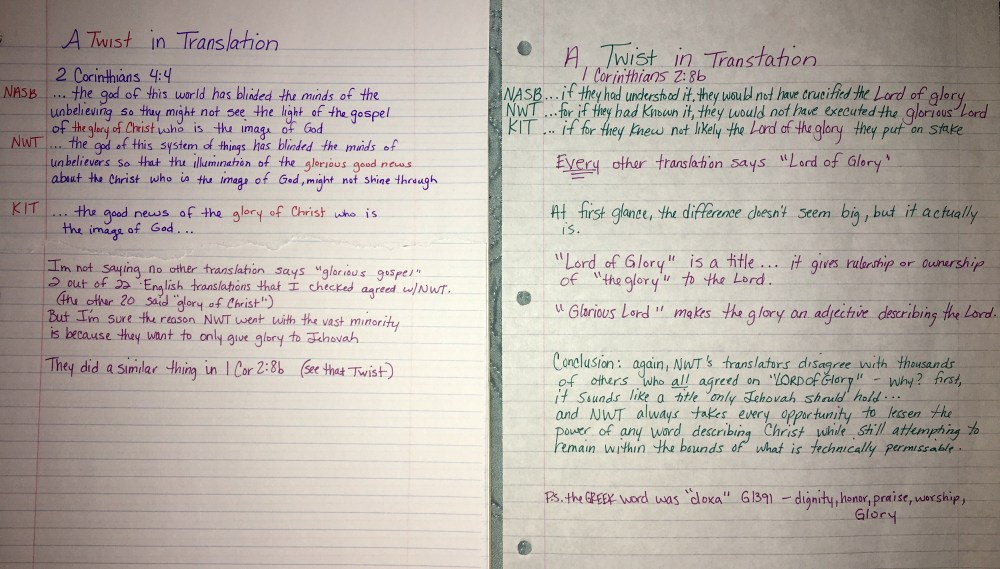 A Twist in Translation
2 Corinthians 4:4
NASB ... the god of this world has blinded the minds of the
unbelieving so they might not see the light of the gospel
of the glory of Christ who is the image of God
NWT ... the god of this system of things has blinded the minds of
unbelievers so that the illumination of the glorious good news
about the Christ who is the image of God, might not shine through
KIT ... the good news of the glory of Christ who is
the image of God...
Im not saying no other translation says "glorious gospel"
2 out of 22 English translations that I checked agreed w/NWT.
(the other 20 said "glory of Christ")
But I'm sure the reason NWT went with the vast minority
is because they want to only give glory to Jehovah
They did a similar thing in 1 Cor 2:8b (see that Twist)
A Twist in Transtation
1 Corinthians 2:8b
NASB ... if they had understood it, they would not have crucified the Lord of glory
NWT ... for if they had known it, they would not have executed the glorious Lord
KIT ... if for they knew not likely the Lord of the glory they put on stake
Every other translation says "Lord of Glory"
At first glance, the difference doesn't seem big, but it actually
is.
"Lord of Glory" is a title ... it gives rulership or ownership
of "the glory" to the Lord.
"Glorious Lord" makes the glory an adjective describing the Lord.
Conclusion: again, NWT's translators disagree with thousands
of others who all agreed on "LORD of Glory" - Why? first,
it sounds like a title only Jehovah should hold...
and NWT always takes every opportunity to lessen the
power of any word describing Christ while still attempting to
remain within the bounds of what is technically permissable.
P.S. the GREEK word was "doxa" G1391 - dignity, honor, praise, worship,
Glory